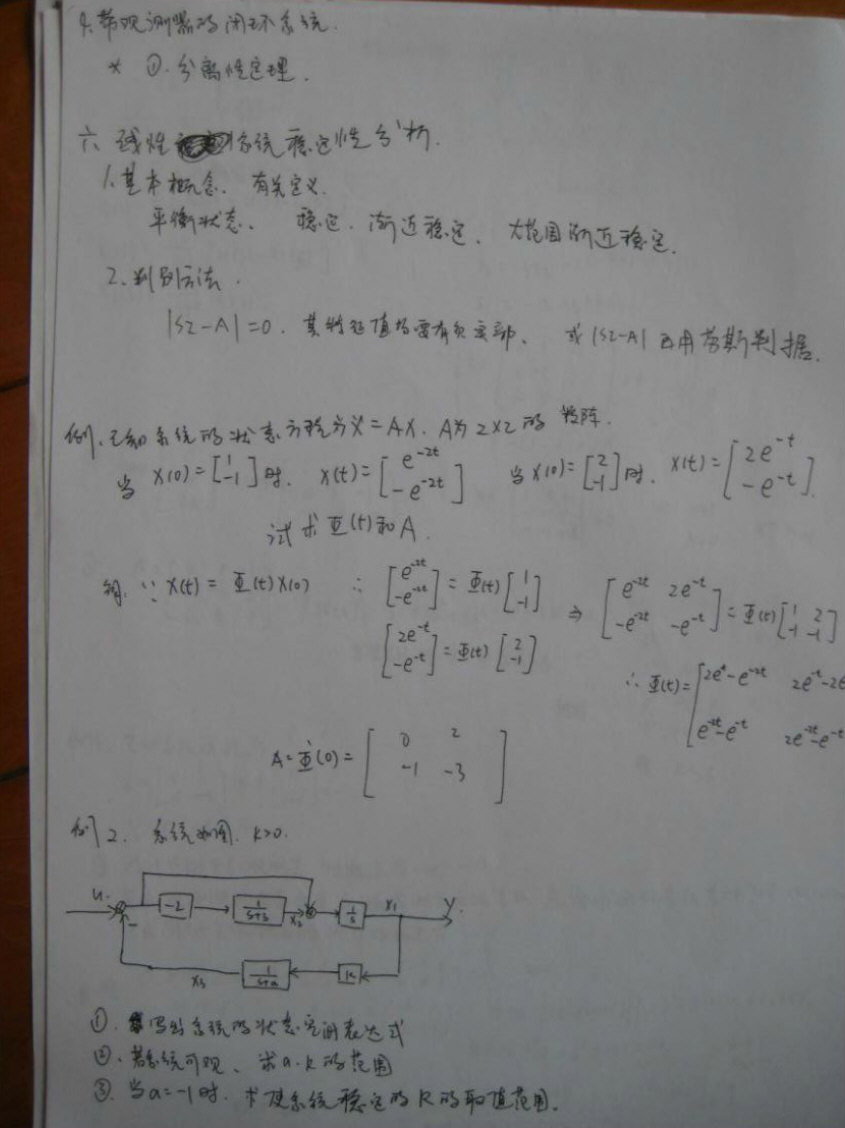 4. 带观测器的闭环系统.
* ①. 分离性定理.
六 线性系统稳定性分析.
1. 基本概念、有关定义.
平衡状态、 稳定. 渐近稳定、 大范围渐近稳定.
2. 判别方法.
|sI-A|=0. 其特征值均要有负实部、 或|sI-A|再用劳斯判据.
例. 已知系统的状态方程为ẋ=AX. A为2×2的矩阵.
当 X(0)=[1 -1]时. X(t)=[e^{-2t} -e^{-2t}] 当X(0)=[2 -1]时. X(t)=[2e^{-t} -e^{-t}].
试求Φ(t)和A.
解: ∵ X(t)=Φ(t)X(0) ∴ [e^{-2t} -e^{-2t}]=Φ(t)[1 -1] ⇒ [e^{-2t} 2e^{-t} -e^{-2t} -e^{-t}]=Φ(t)[1 2 -1 -1]
[2e^{-t} -e^{-t}]=Φ(t)[2 -1]
∴ Φ(t)=[2e^{-t}-e^{-2t} 2e^{-t}-2e
e^{-2t}-e^{-t} 2e^{-2t}-e^{-t}
A=Φ̇(0)=[0 2 -1 -3]
例2. 系统如图. K>0.
u. - -2 1/(s+3) x₂ 1/s x₁ y.
x₃ 1/(s+a) K
①. 写出系统的状态空间表达式
②. 若系统可观、求a.k的范围
③. 当a=-1时. 求使系统稳定的K的取值范围.